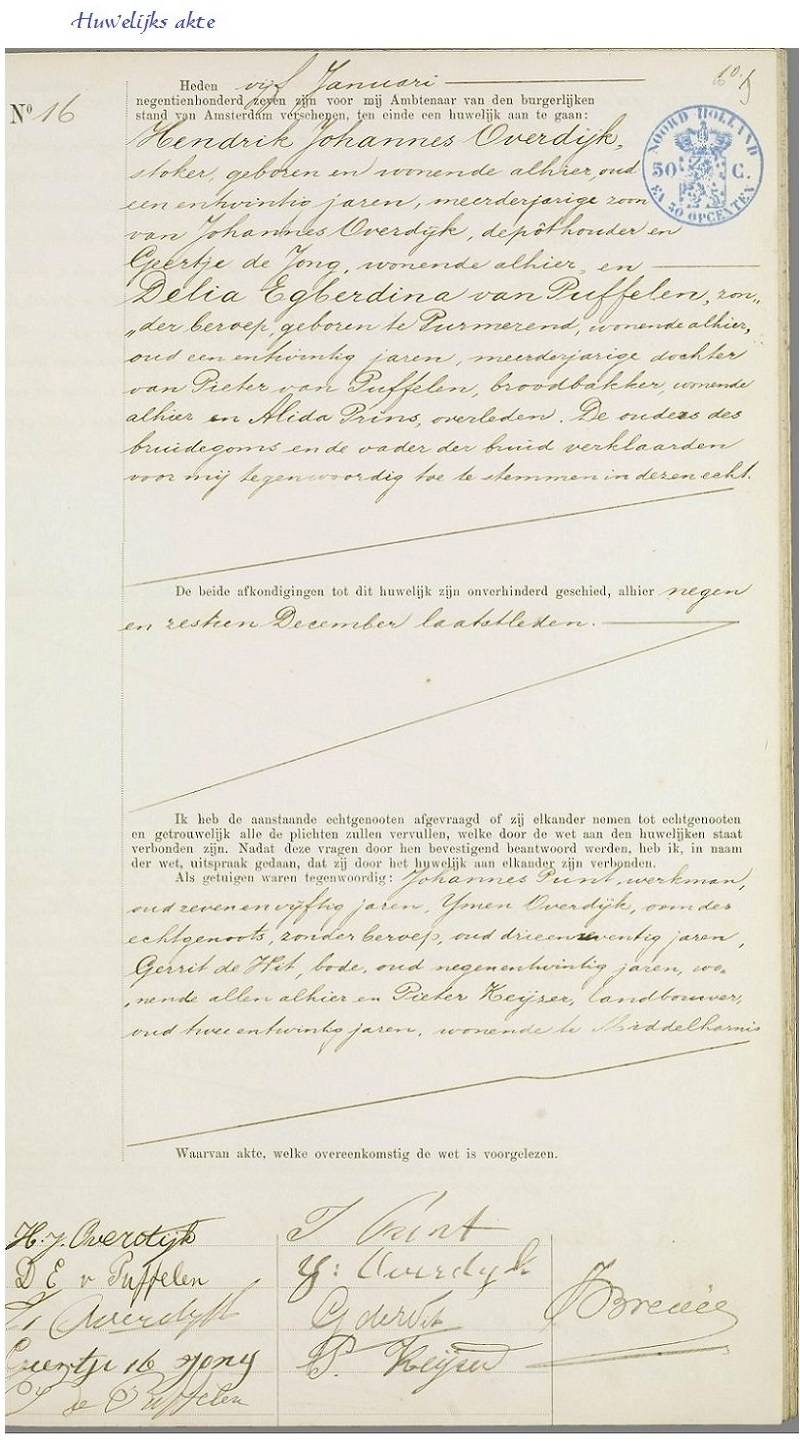 Huwelijks akte
Nº 16
Heden vijf Januari
negentienhonderd zeven zijn voor mij Ambtenaar van den burgerlijken
stand van Amsterdam verschenen, ten einde een huwelijk aan te gaan:
NOORD HOLLAND
50 C.
EN 50 OPCENTEN
Hendrik Johannes Overdijk,
stoker, geboren en wonende alhier, oud
een entwintig jaren, meerderjarige zoon
van Johannes Overdijk, depôthouder en
Geertje de Jong, wonende alhier, en
Delia Egberdina van Puffelen, zon„
„der beroep, geboren te Purmerend, wonende alhier,
oud een entwintig jaren, meerderjarige dochter
van Pieter van Puffelen, broodbakker, wonende
alhier en Alida Prins, overleden. De ouders des
bruidegoms en de vader der bruid verklaarden
voor mij tegenwoordig toe te stemmen in dezen echt.
De beide afkondigingen tot dit huwelijk zijn onverhinderd geschied, alhier negen
en zestien December laatstleden.
Ik heb de aanstaande echtgenooten afgevraagd of zij elkander nemen tot echtgenooten
en getrouwelijk alle de plichten zullen vervullen, welke door de wet aan den huwelijken staat
verbonden zijn. Nadat deze vragen door hen bevestigend beantwoord werden, heb ik, in naam
der wet, uitspraak gedaan, dat zij door het huwelijk aan elkander zijn verbonden.
Als getuigen waren tegenwoordig: Johannes Punt, werkman,
oud zeven en vijftig jaren, Ymen Overdijk, oom des
echtgenoots, zonder beroep, oud drieenzeventig jaren,
Gerrit de Wit, bode, oud negenentwintig jaren, wo„
„nende allen alhier en Pieter Keijzer, landbouwer,
oud twee entwintig jaren, wonende te Middelharnis
Waarvan akte, welke overeenkomstig de wet is voorgelezen.
H. J. Overdijk
D E v Puffelen
Overdijk
Geertje de Jong
Puffelen
J Punt
Y: Overdijk
G de Wit
P. Keijzer